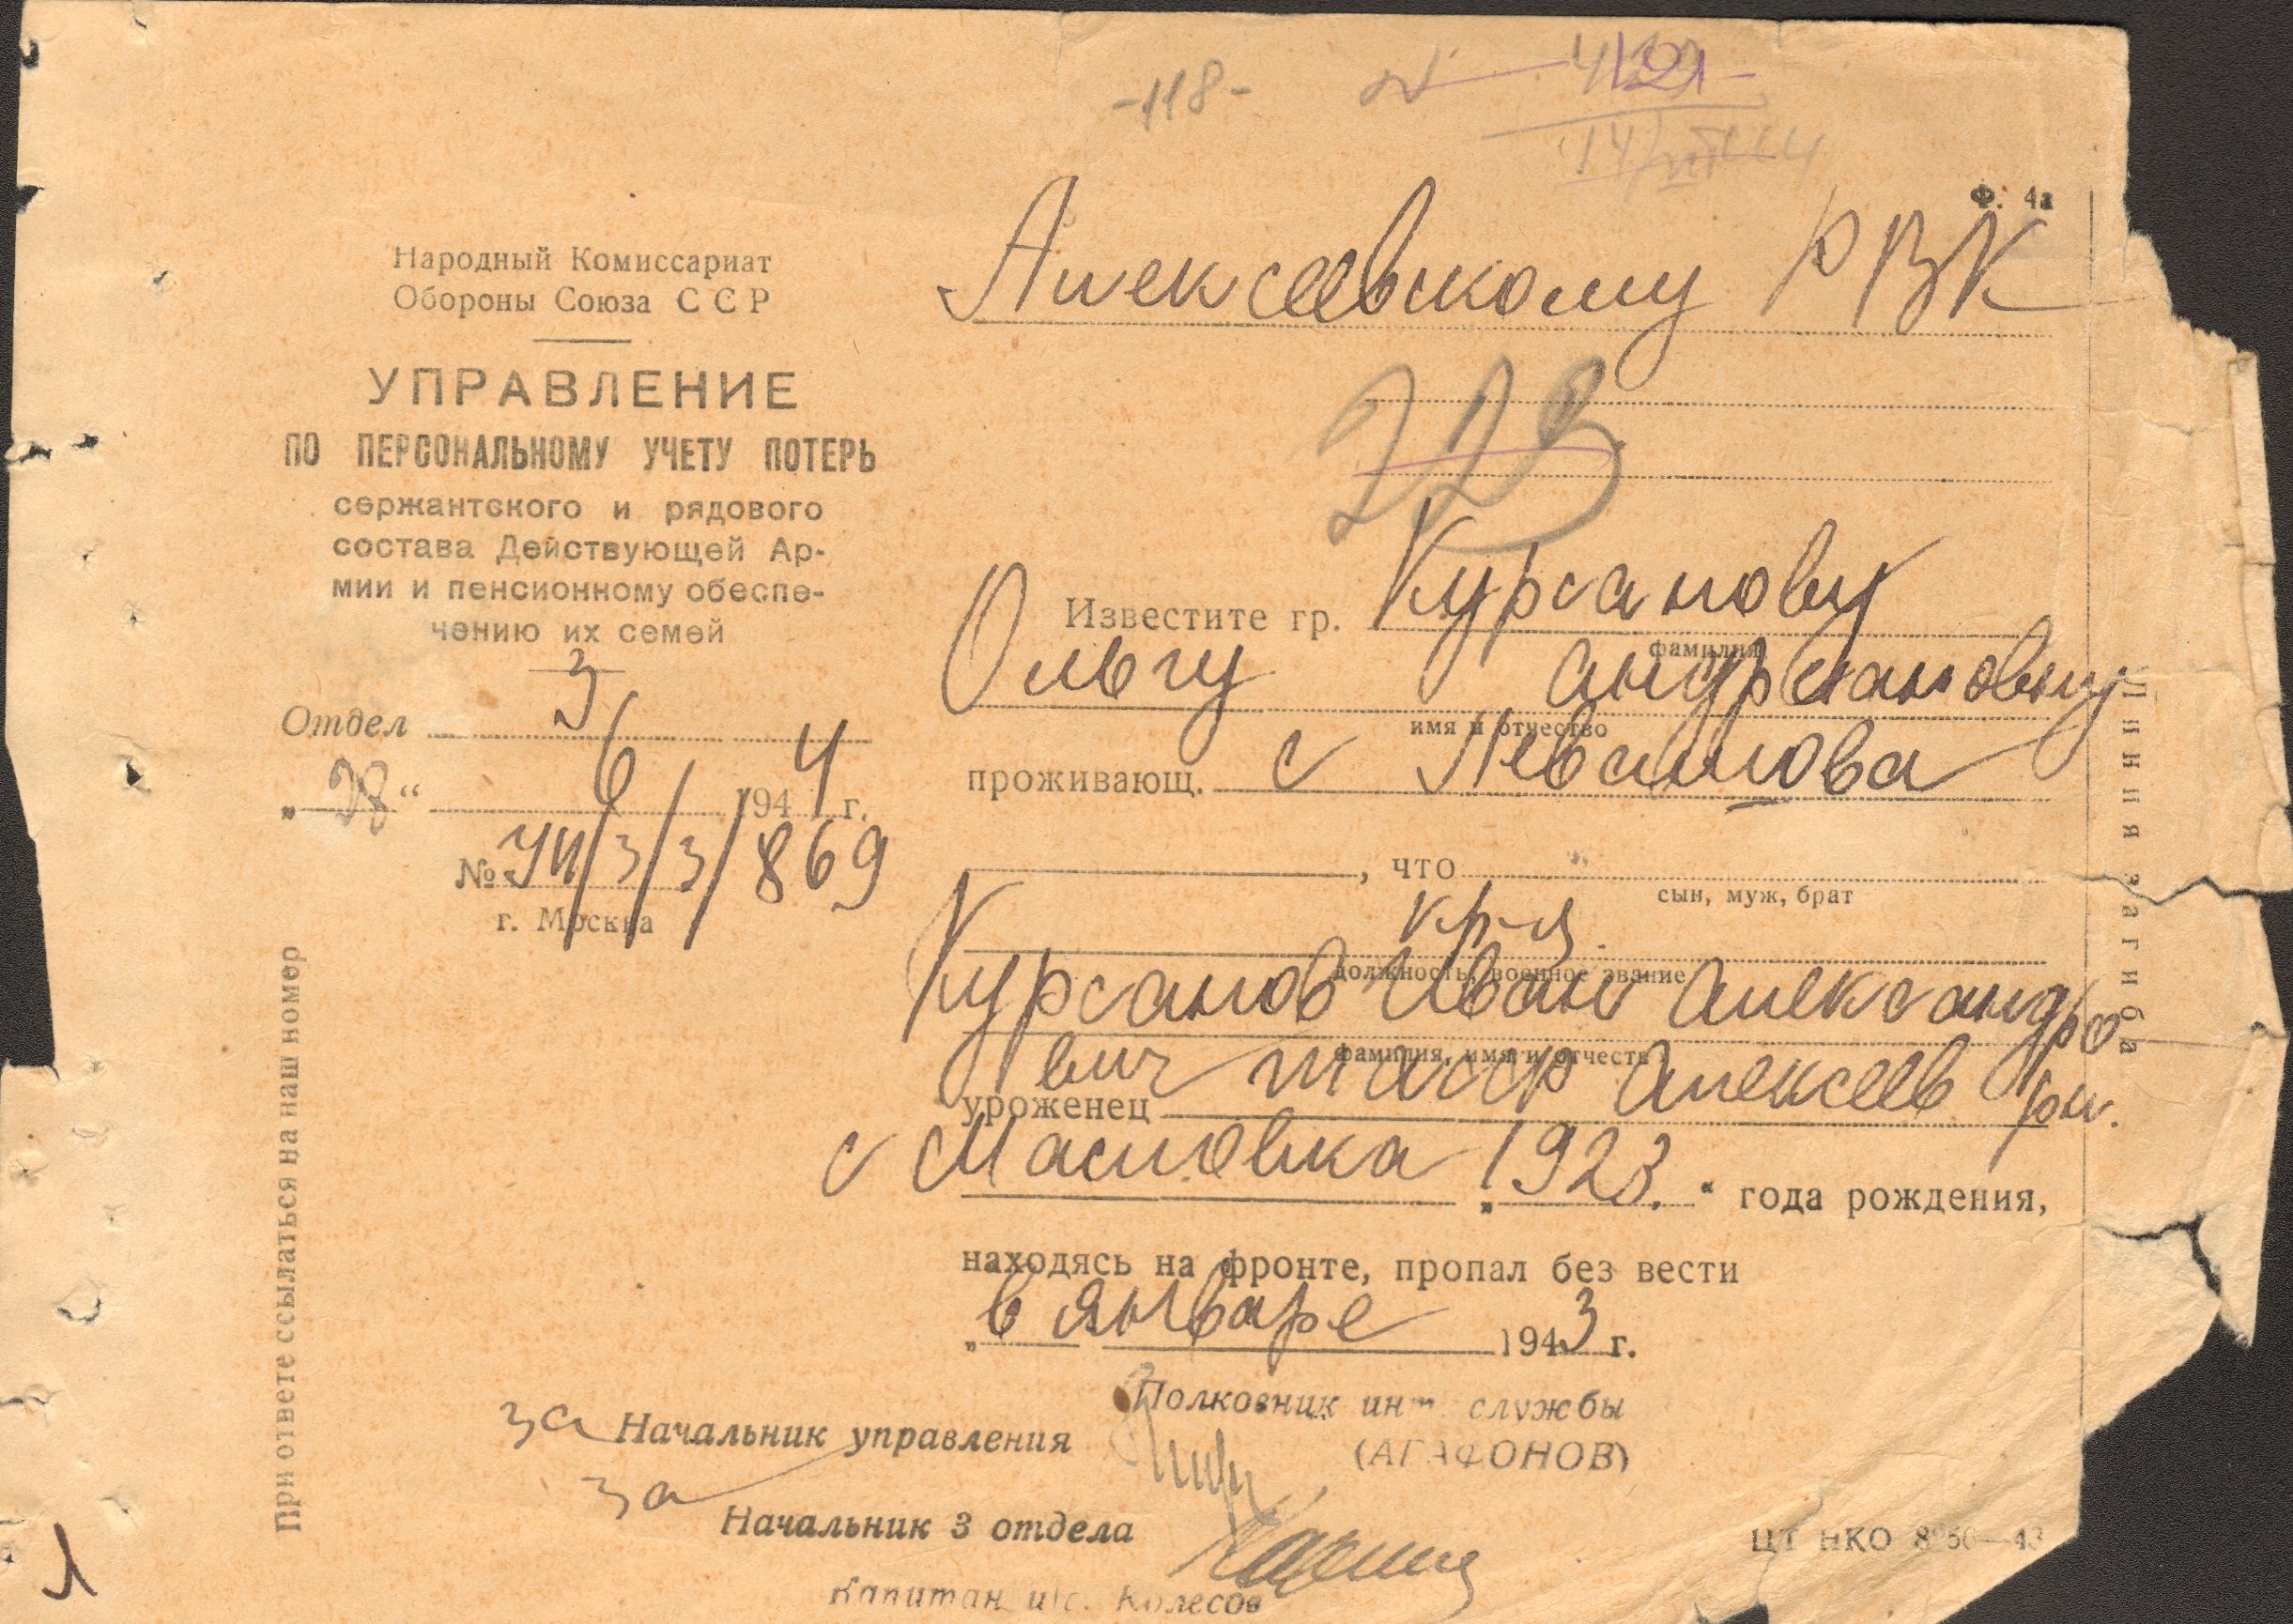 -118-
Ф. 4а
Народный Комиссариат
Обороны Союза ССР
УПРАВЛЕНИЕ
ПО ПЕРСОНАЛЬНОМУ УЧЕТУ ПОТЕРЬ
сержантского и рядового
состава Действующей Ар-
мии и пенсионному обеспе-
чению их семей
Отдел 3
„28“ 6 1944 г.
№ УП/3/3/869
г. Москва
При ответе ссылаться на наш номер
Алексеевскому РВК
Известите гр. Курсанову
фамилия
Ольгу
имя и отчество
проживающ. с
, что
сын, муж, брат
кр-ц
должность, военное звание
Курсанов Иван Александро
фамилия, имя и отчество
вич
уроженец тасср Алексеев рн.
с Масловка „1923.“ года рождения,
находясь на фронте, пропал без вести
„в январе 1943 г.
за Начальник управления
Полковник инт. службы
(АГАФОНОВ)
за
Начальник 3 отдела
Капитан и/с. Колесов
Линия загиба
ЦТ НКО